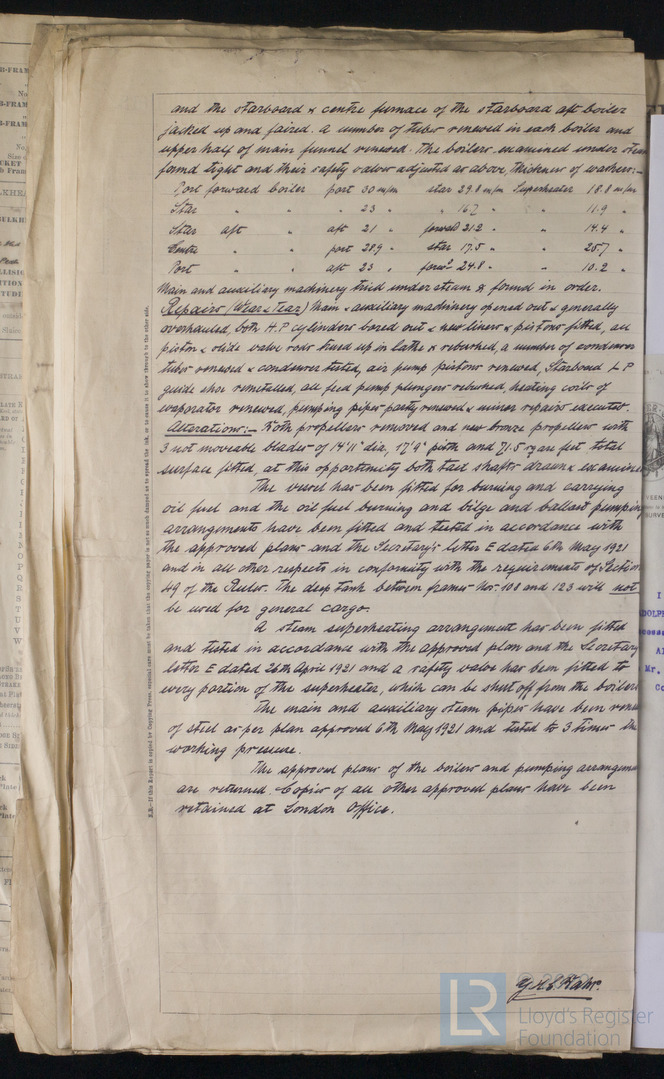 and the starboard & centre furnace of the starboard aft boiler
jacked up and faired. A number of tubes renewed in each boiler and
upper half of main funnel renewed. The boilers examined under steam
found tight and their safety valves adjusted as above, thickness of washers:—
Port forward boiler port 30 m/m star 29.8 m/m Superheater 18.8 m/m
Star " " " 23 " " 16.2 " " 11.9 "
Star aft " aft 21 " forward 21.2 " " 14.4 "
Centre " port 28.9 " star 17.5 " " 20.7 "
Port " " aft 23 " forwd 24.8 " " 10.2 "
Main and auxiliary machinery tried under steam & found in order.
Repairs (Wear & Tear) Main & auxiliary machinery opened out & generally
overhauled, both H.P cylinders bored out & new liners & pistons fitted, all
piston & slide valve rods trued up in lathe & rebushed, a number of condenser
tubes renewed & condenser tested, air pump pistons renewed, Starboard L P
guide shoe remetalled, all feed pump plungers rebushed, heating coils of
evaporator renewed, pumping pipes partly renewed & minor repairs executed.
Alterations:— Both propellers removed and new bronze propellers with
3 not moveable blades of 14'11" dia, 17'9" pitch and 71.5 square feet total
surface fitted, at this opportunity both tail shafts drawn & examined
The vessel has been fitted for burning and carrying
oil fuel and the oil fuel burning and bilge and ballast pumping
arrangements have been fitted and tested in accordance with
the approved plans and the Secretary's letter E dated 6th May 1921
and in all other respects in conformity with the requirements of Section
49 of the Rules. The deep tank between frames Nos. 108 and 123 will not
be used for general cargo.
A steam superheating arrangement has been fitted
and tested in accordance with the approved plan and the Secretary
letter E dated 26th April 1921 and a safety valve has been fitted to
every portion of the superheater, which can be shut off from the boilers
The main and auxiliary steam pipes have been rene
of steel as per plan approved 6th May 1921 and tested to 3 times the
working pressure.
The approved plans of the boilers and pumping arrangem
are returned. Copies of all other approved plans have been
retained at London Office.
N.B.—If this Report is copied by Copying Press, especial care must be taken that the copying paper is not so much damped as to spread the ink, or to cause it to show through to the other side.
LR
Lloyd's Register
Foundation